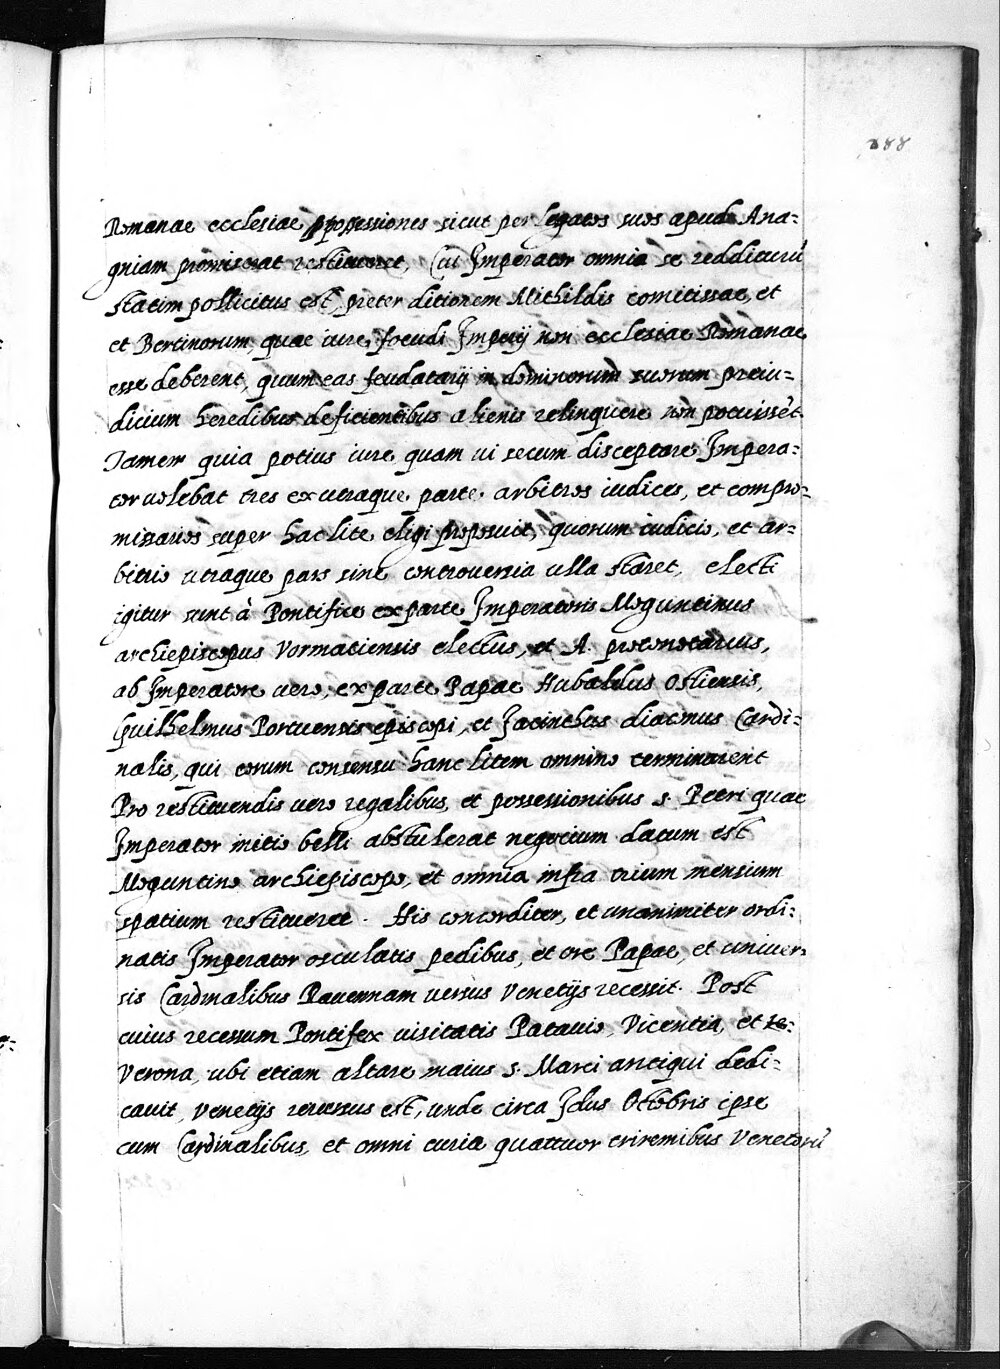 288
Romanae ecclesiae possessiones sicut per legatos suos apud Ana-
gniam promiserat restitueret, Cui Imperator omnia se redditurũ
statim pollicitus est, preter ditionem Mithildis comitissae, et
et Bertinorum, quae iure foeudi Imperij non ecclesiae Romanae
esse deberent, quum eas feudatarij in dominorum suorum preiu-
dicium heredibus deficientibus alienis relinquere non potuissẽt
Tamen quia potius iure quam ui secum disceptare Impera-
tor uolebat tres ex utraque parte arbitros iudices, et compro-
missarios super hac lite eligi proposuit, quorum iudicio, et ar-
bitrio utraque pars sine controuersia ulla staret, electi
igitur sunt à Pontifice ex parte Imperatoris Moguntinus
archiepiscopus Vormatiensis electus, et A. protonotarius,
ab Imperatore uero, ex parte Papae Hubaldus Ostiensis,
Guilhelmus Portuensis episcopi, et Jacinthus diaconus Cardi-
nalis, qui eorum consensu hanc litem omnino terminarent
Pro restituendis uero regalibus, et possessionibus s. Petri quae
Imperator initio belli abstulerat negocium datum est
Moguntino archiepiscopo, et omnia infra trium mensium
spatium restitueret. His concorditer, et unanimiter ordi-
natis Imperator osculatis pedibus, et ore Papae, et uniuer-
sis Cardinalibus Rauennam uersus Venetijs recessit. Post
cuius recessum Pontifex uisitatis Patauio, Vicentia, et
Verona, ubi etiam altare maius S. Marci antiqui dedi-
cauit, Venetijs reuersus est, unde circa Idus Octobris ipse
cum Cardinalibus, et omni curia quattuor triremibus Venetorũ